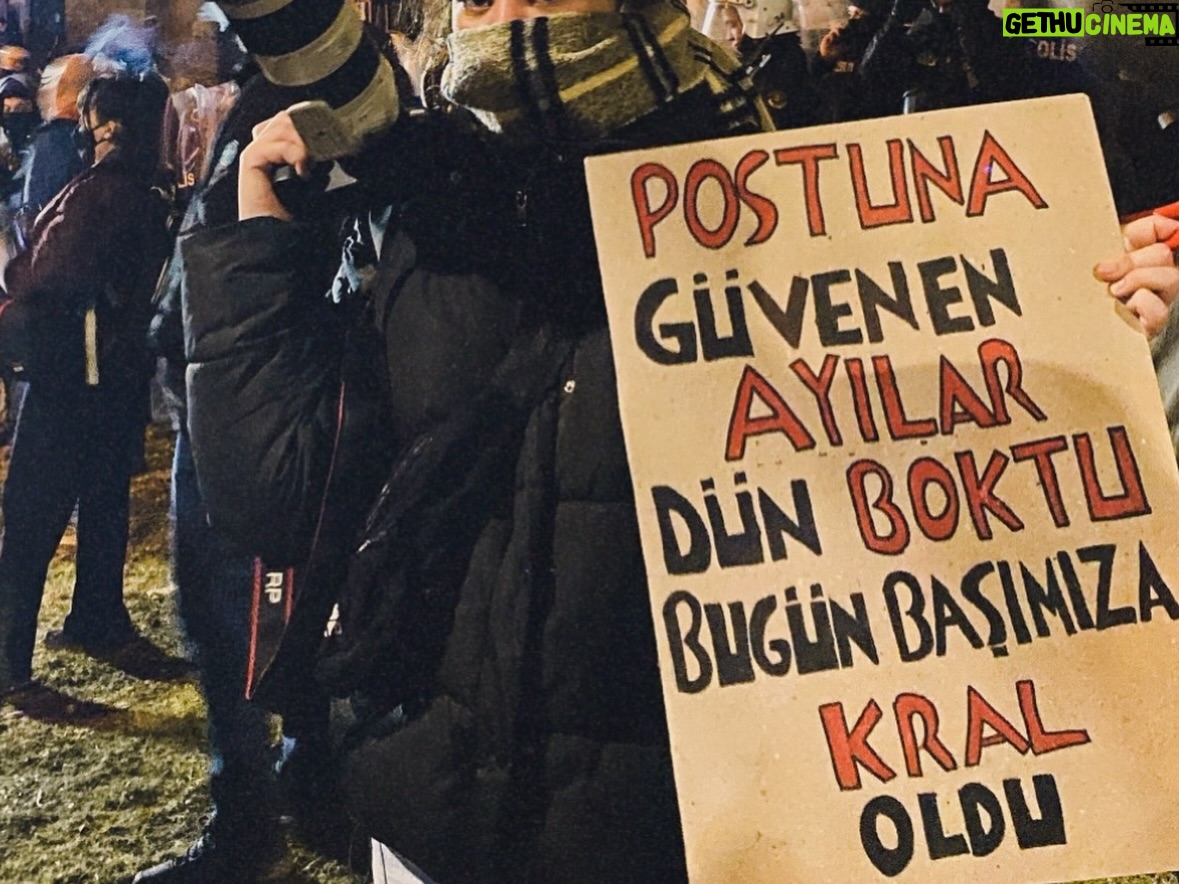 GETHUCINEMA
POLİS
POSTUNA
GÜVENEN
AYILAR
DÜN BOKTU
BUGÜN BAŞIMIZA
KRAL
OLDU
RP